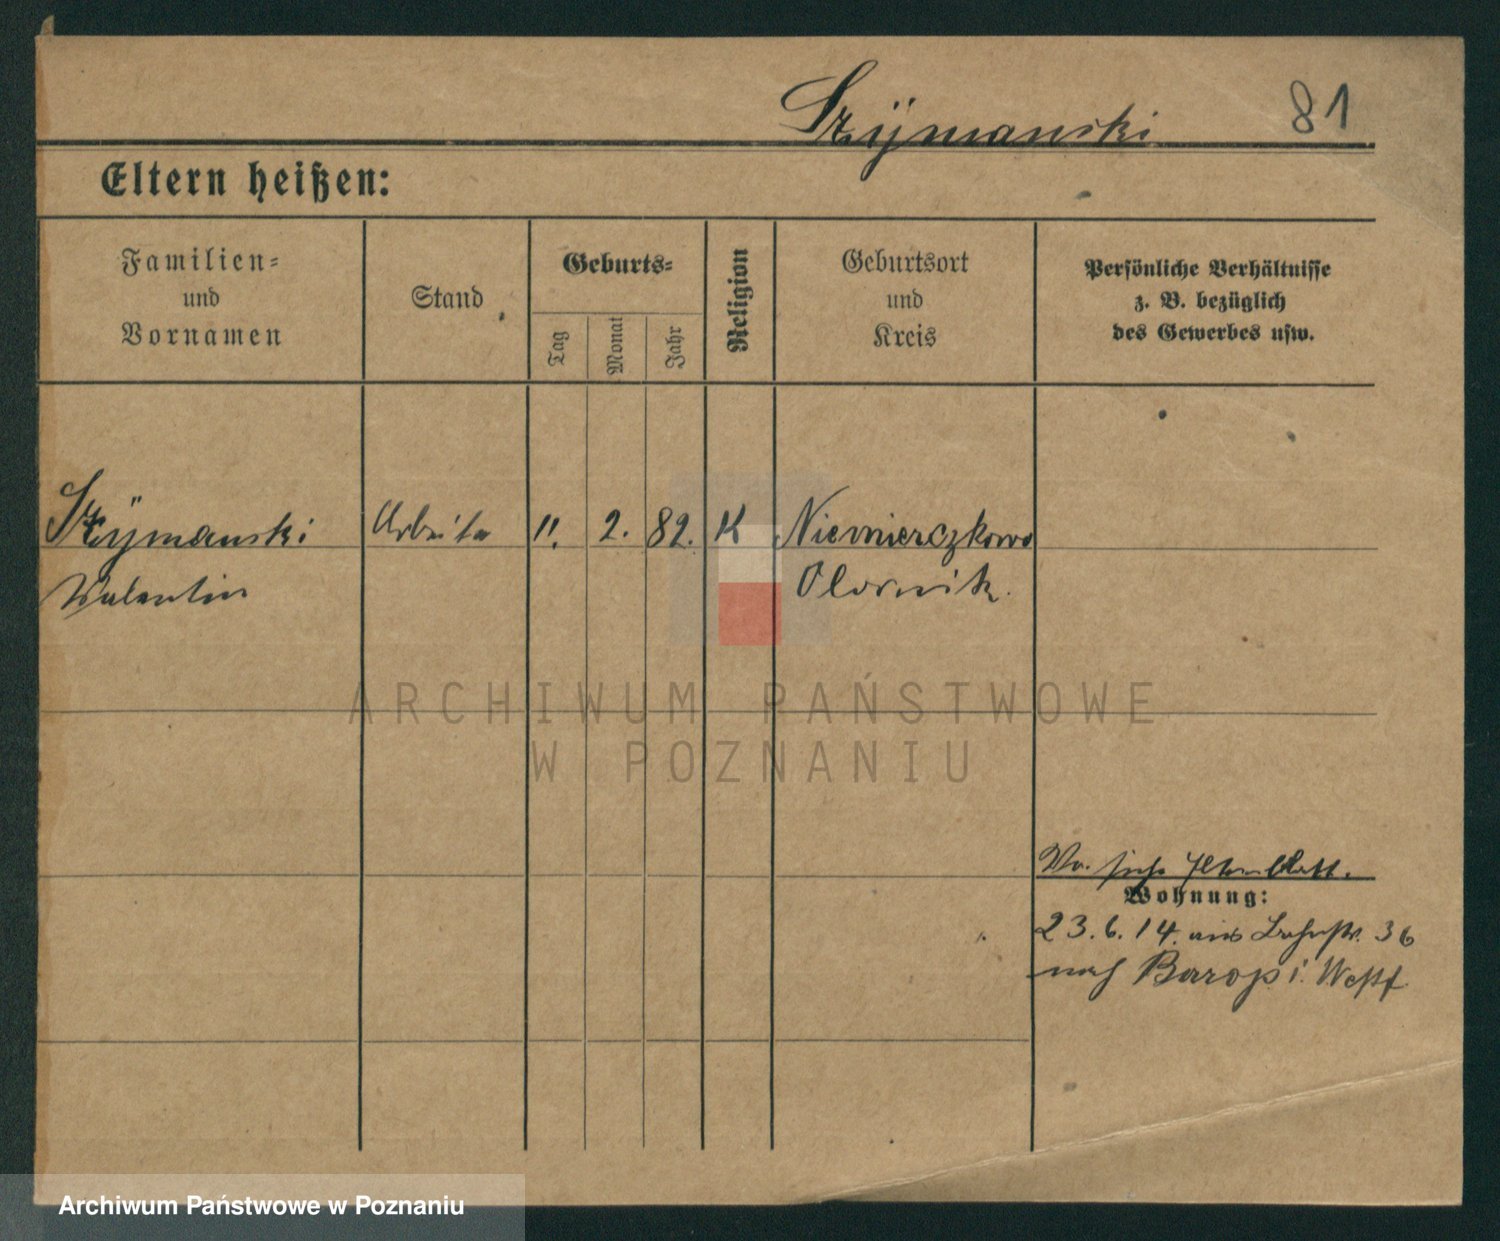 Szÿmanski 81
Eltern heißen:
Familien-
und
Vornamen
Stand
Geburts-
Tag
Monat
Jahr
Religion
Geburtsort
und
Kreis
Persönliche Verhältnisse
z. B. bezüglich
des Gewerbes usw.
Szÿmanski Arbeiter 11. 2. 82. K Niemierczkowo
Valentin Obornik.
ARCHIWUM PAŃSTWOWE
W POZNANIU
siehe
Wohnung:
23.6.14. aus Bahnstr. 36
nach Barop i. Westf.
Archiwum Państwowe w Poznaniu